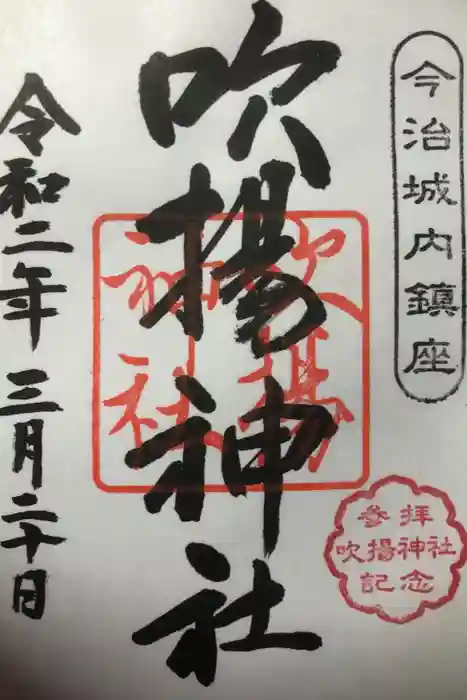 今治城内鎮座
吹揚神社
吹揚
神社
参拝
吹揚神社
記念
令和二年三月二十日